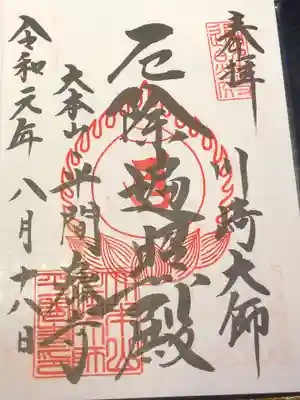 奉拝
川崎大師
厄除遍照殿
大本山平間寺
令和元年八月十八日